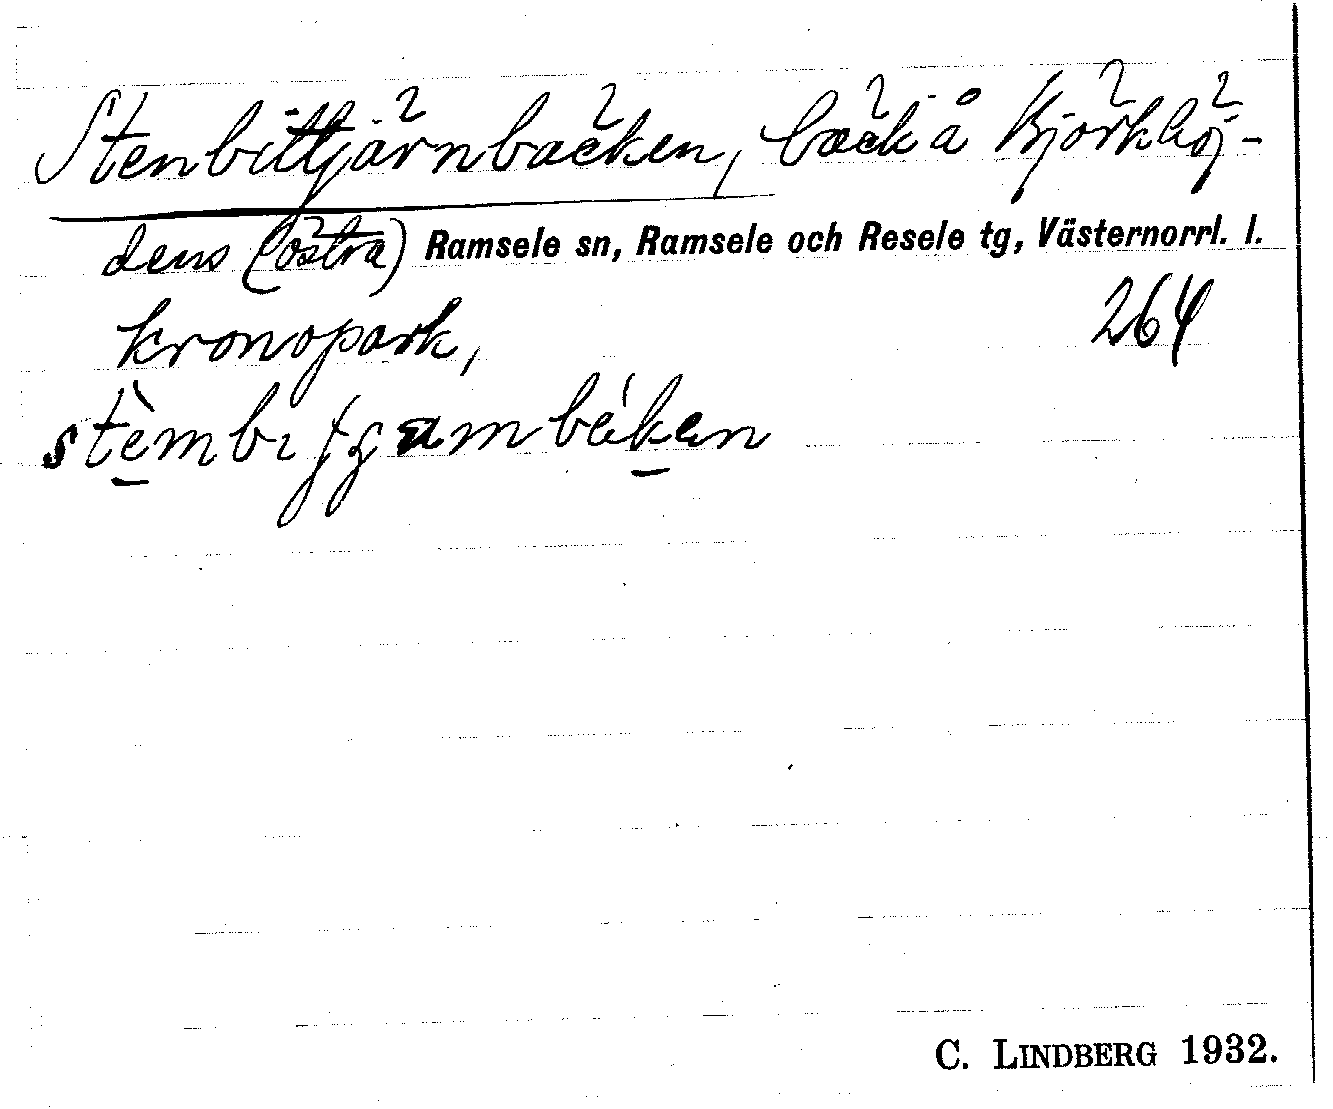 Stenbittjärnbäcken, bäck å Björkhöj-
dens (östra) Ramsele sn, Ramsele och Resele tg, Västernorrl. l.
kronopark,
264
C. LINDBERG 1932.